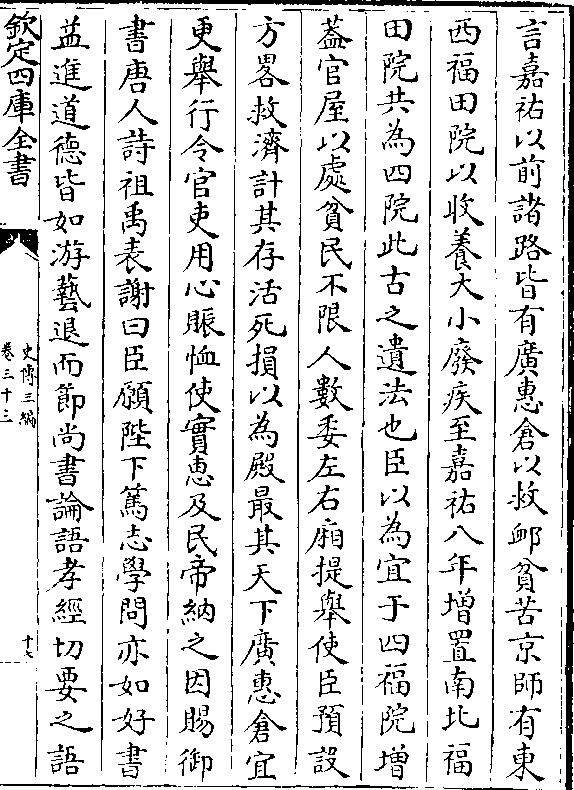 言嘉祐以前諸路皆有廣惠倉以救邺貧苦京師有東
西福田院以收養大小廢疾至嘉祐八年增置南北福
田院共為四院此古之遺法也臣以為宜于四福院增
葢官屋以處貧民不限人數委左右廂提舉使臣預設
方畧救濟計其存活死損以為殿最其天下廣惠倉宜
更舉行令官吏用心賑恤使實惠及民帝納之因賜御
書唐人詩祖禹表謝曰臣願陛下篤志學問亦如好書
益進道德皆如游藝退而節尚書論語孝經切要之語
欽定四庫全書
史傳三編
卷三十三
十六